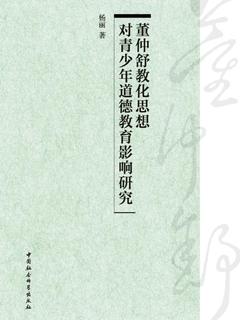 杨丽 著
董仲舒教化思想
对青少年道德教育影响研究
董仲舒
中国社会科学出版社